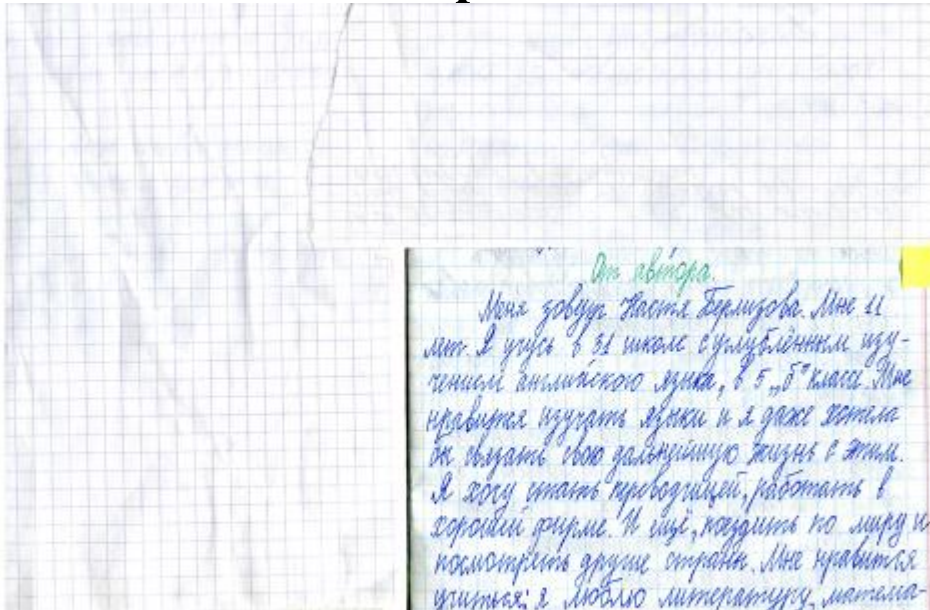 От автора.
Меня зовут Настя Бермизова. Мне 11
лет. Я учусь в 31 школе с углублённым изу-
чением английского языка, в 5 „б" классе. Мне
нравится изучать языки и я даже хотела
бы связать свою дальнейшую жизнь с этим.
Я хочу стать переводчицей, работать в
хорошей фирме. И ещё, поездить по миру и
посмотреть другие страны. Мне нравится
учиться; я люблю литературу, матема-